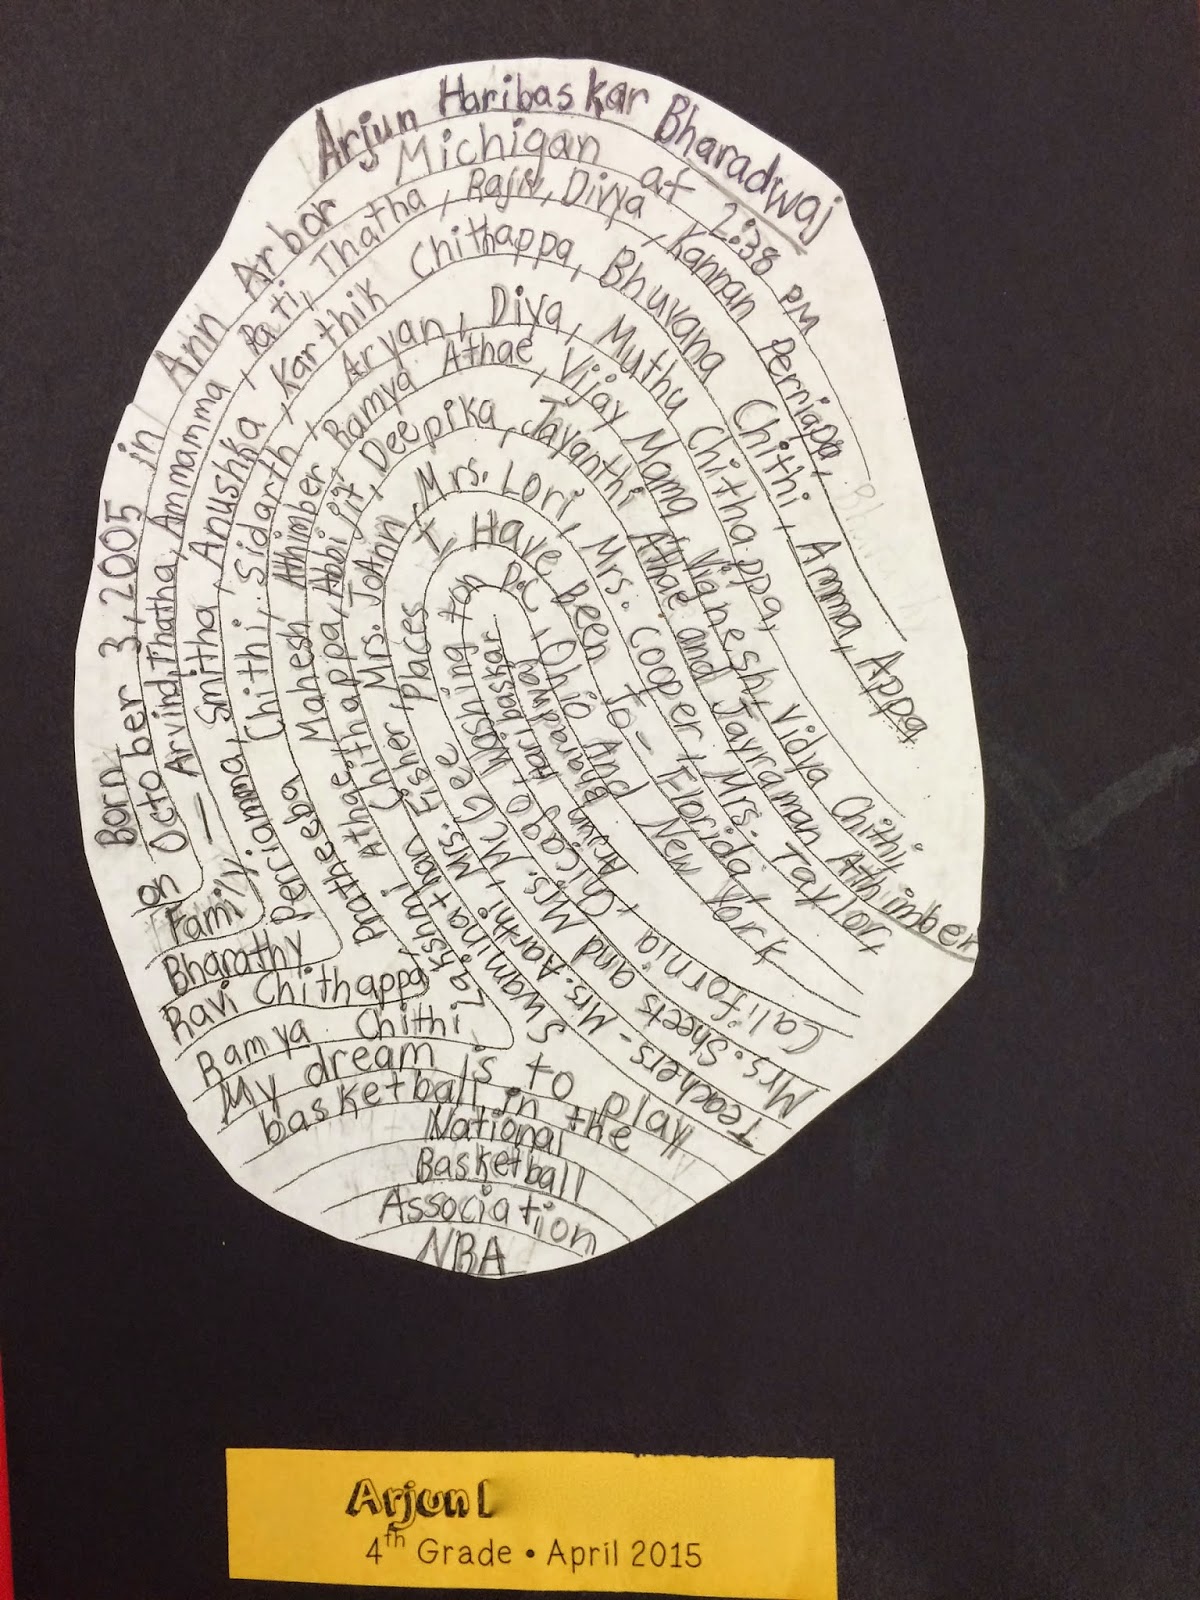 Arjun Haribaskar Bharadwaj
Born on October 3, 2005 in Ann Arbor Michigan at 2:38 PM
Family - Arvind, Thatha, Ammamma, Pati, Thatha, Rajiv, Divya, Kannan Perriapa,
Bharathy Perriamma, Smitha, Anushka, Karthik Chithappa, Bhuvana Chithi, Amma, Appa,
Ravi Chithappa, Chithi, Sidarth, Aryan, Diya, Muthu Chithappa, Vidya Chithi,
Ramya Chithi, Mahesh Athimber, Ramya Athae, Vijay Mama, Vignesh, Athimber
Pratheeba Athae, Chithappa, Abbijit, Deepika, Jayanthi Athae and Jayraman
Lakshmi
Swaminathan
Teachers - Mrs. Aarthi, Mrs. Fisher, Mrs. JoAnn, Mrs. Lori, Mrs. Cooper, Mrs. Taylor,
Mrs. Sheets and Mrs. McGee
Places I Have been To - Florida
New York
California, Chicago, Washington DC, Ohio And
Arjun Haribaskar Bharadwaj
My dream is to play
basketball in the
National
Basketball
Association
NBA
Arjun
4th Grade • April 2015